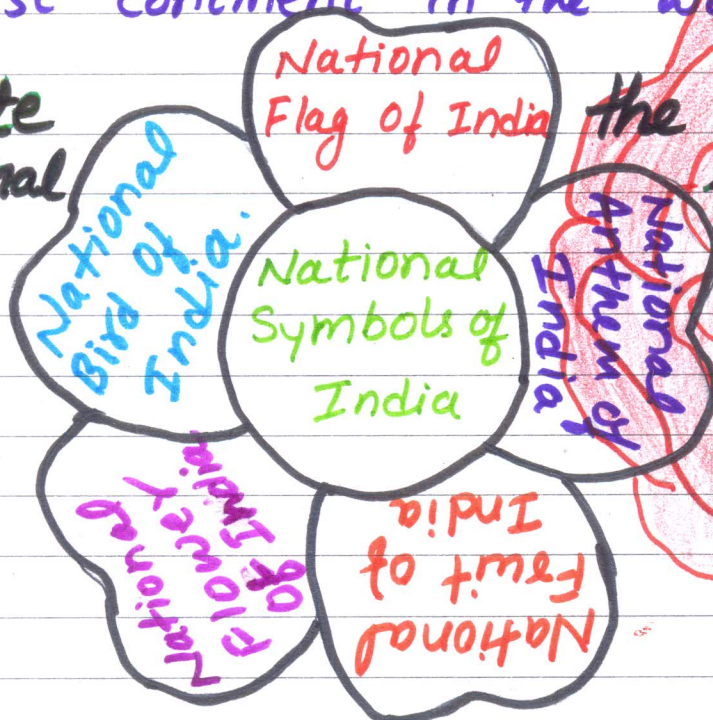 continent in the
National
Flag of India
the
National
Bird of
India.
National
Symbols of
India
National
Anthem of
India
National
Flower
of India
National
Fruit of
India